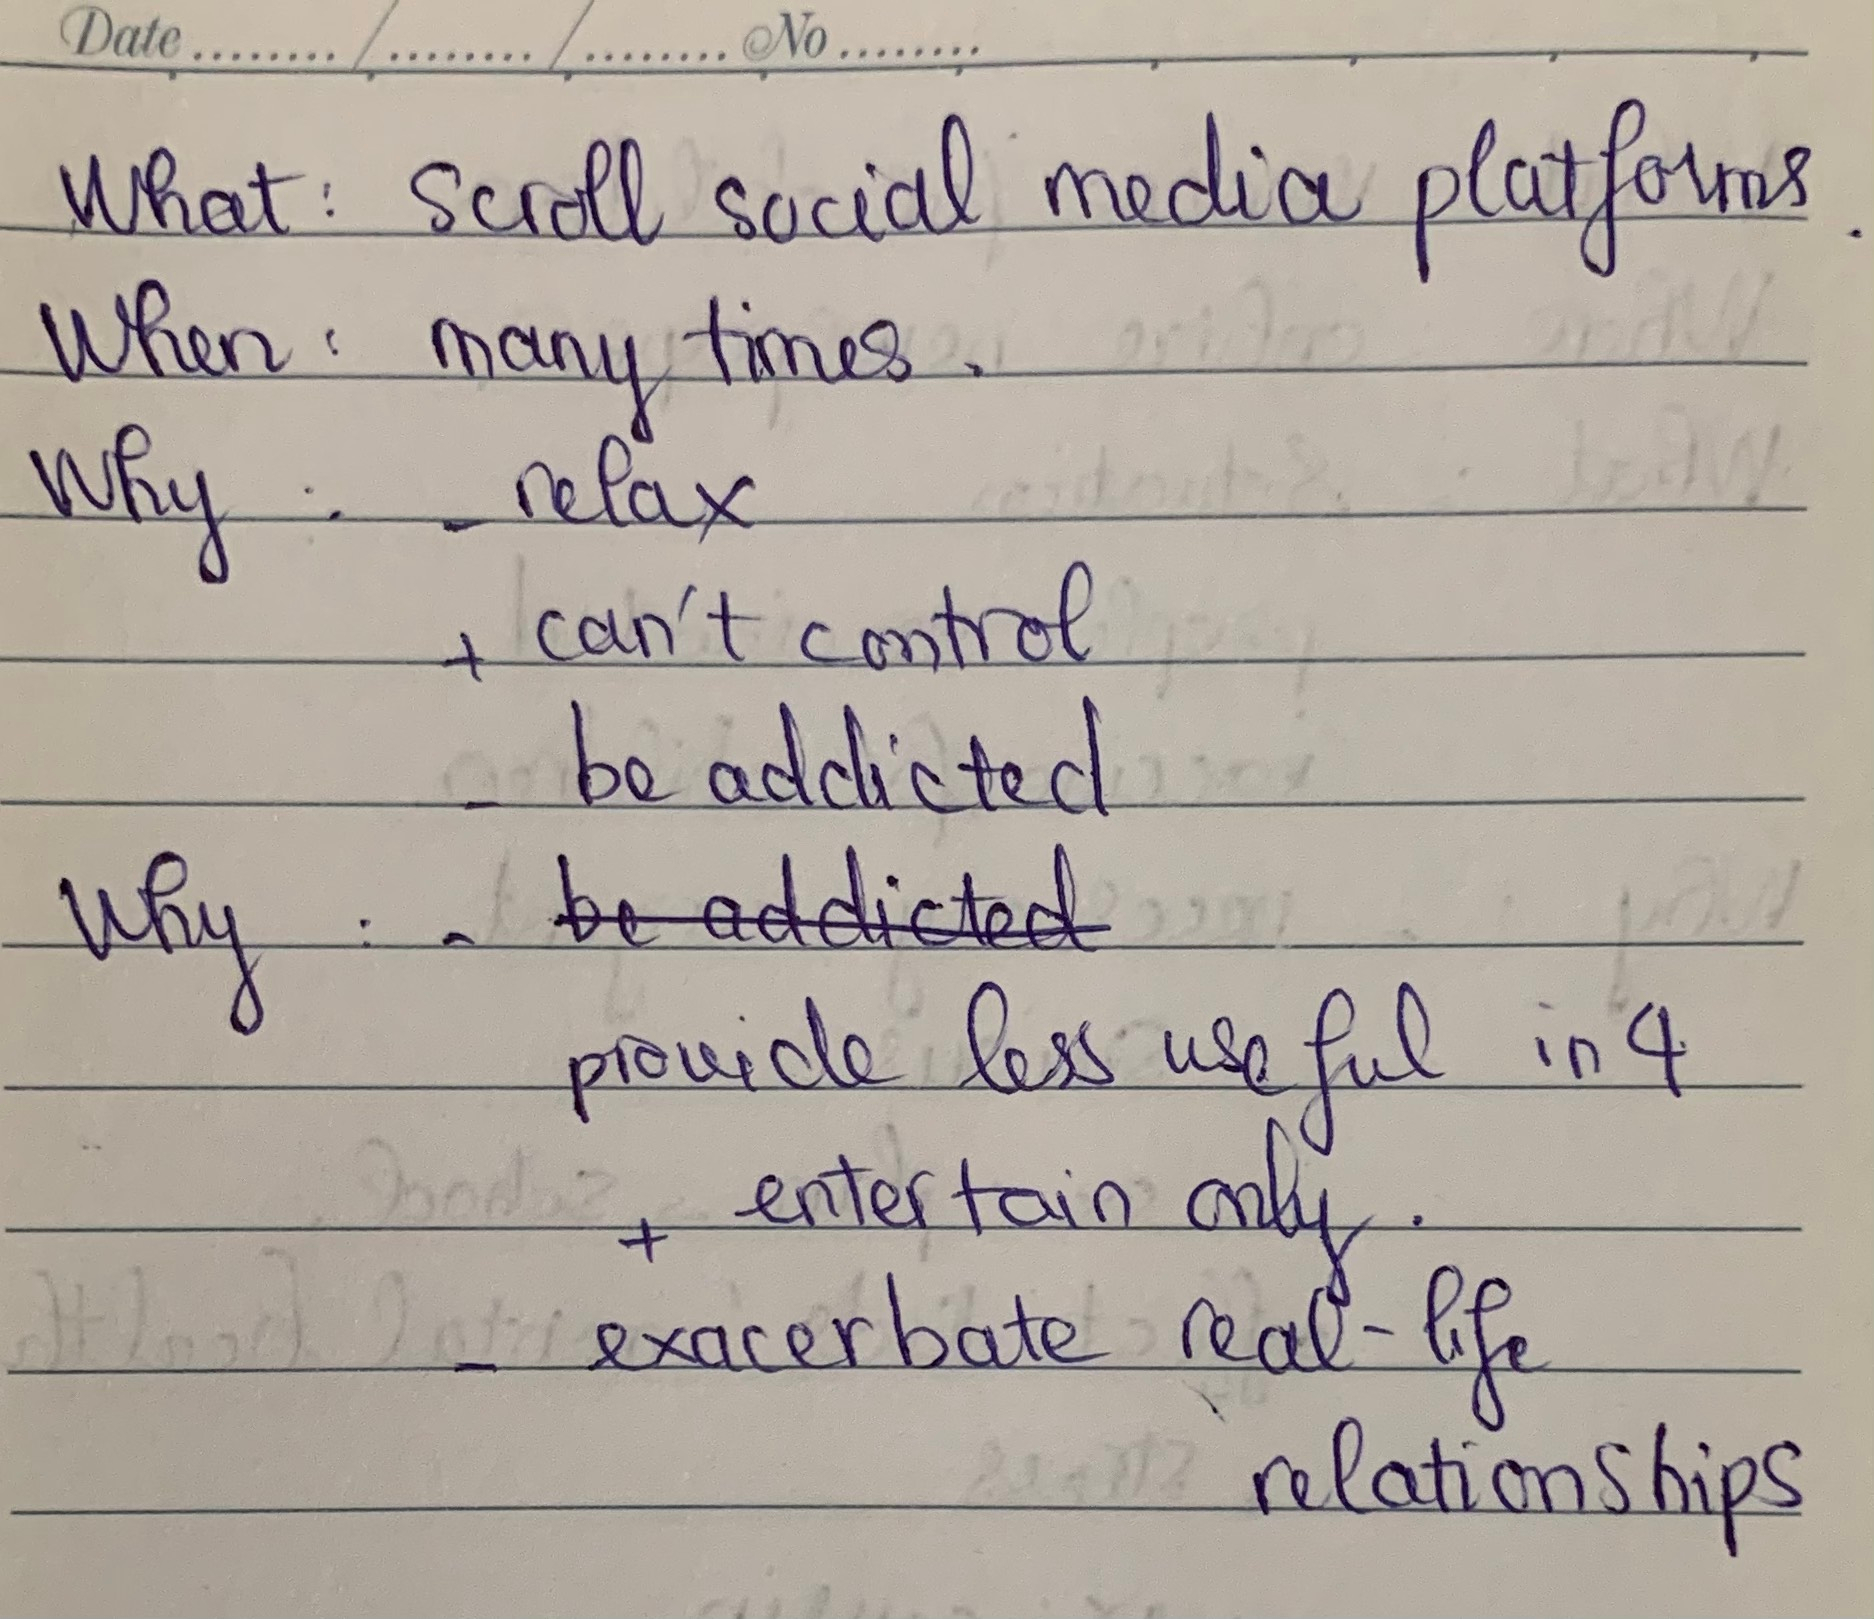 Date ......... / ......... / ......... No .........
What : Scroll social media platforms .
When : many times .
Why : - relax
+ can't control
- be addicted
Why : - be addicted
provide less useful in4
+ entertain only .
- exacerbate real-life
relationships